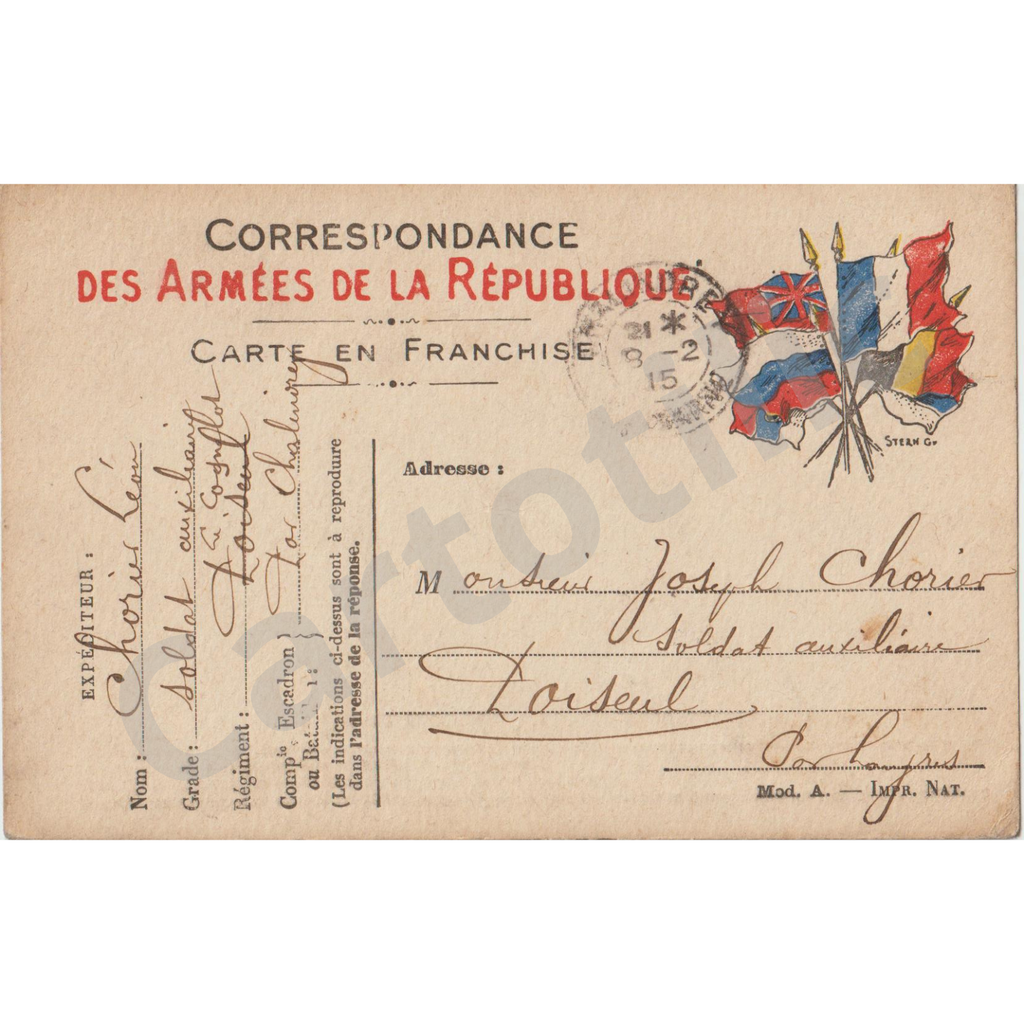 CORRESPONDANCE
DES ARMÉES DE LA RÉPUBLIQUE
CARTE EN FRANCHISE
21 *
8 -2
15
STERN Gr
EXPÉDITEUR :
Nom : Chorier Léon
Grade : soldat auxiliaire
Le Cognelot
Régiment : Loiseul
Compie, Escadron } Par Chalindrey
ou
(Les indications ci-dessus sont à reproduire
dans l'adresse de la réponse.
Adresse :
Monsieur Joseph Chorier
Soldat auxiliaire
Loiseul
Par Langres
Mod. A. — IMPR. NAT.
Cartoti